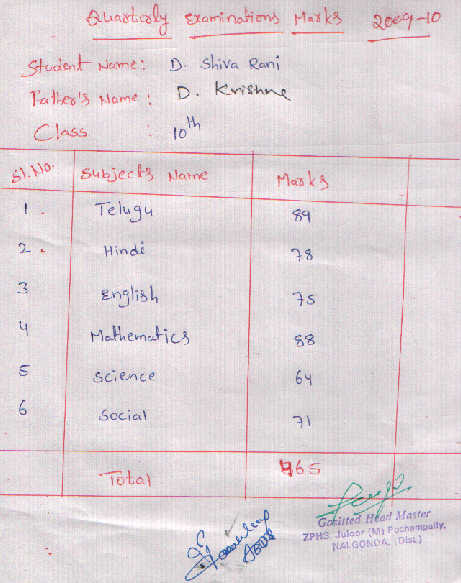 Quarterly Examinations Marks 2009-10
Student Name: D. Shiva Rani
Father's Name: D. Krishna
Class : 10th
Sl.No. Subjects Name Marks
1. Telugu 89
2. Hindi 78
3 English 75
4 Mathematics 88
5 Science 64
6 Social 71
Total 465
Gazitted Head Master
ZPHS, Juloor (M) Pochampally,
NALGONDA, (Dist.)